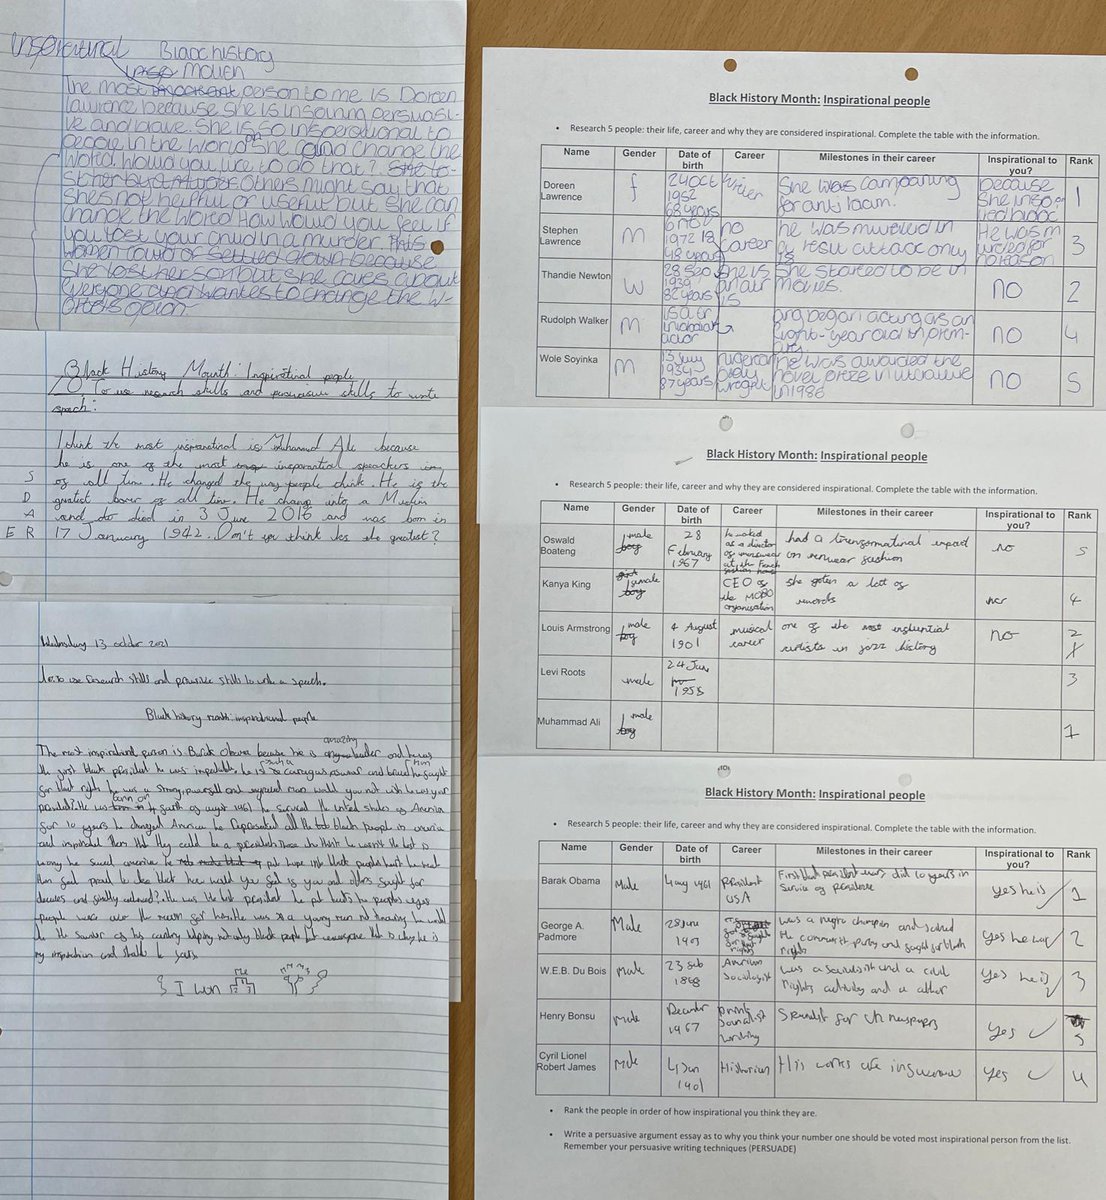 Insperatinal Black history
Moven
The most important person to me is Doreen
Lawrence because she is insoiring persuasi-
ve and brave. She is so insperational to
people in the world she can change the
World. Would you like to do that?
others might say that
She's not helpful or useful but she can
change the World How would you feel if
you lost your child in a murder. This
Women could of settled down because
She lost her son but she cares about
everyone and wantes to change the W-
Black History Month: Inspirational people
LO: To use research skills and persuasive skills to write
speach:
I think the most inspirational is Muhamad Ali because
he is one of the most insperantial speackers
of all time. He changed the way people think. He is the
greatest boxer of all time. He change into a Muslim
and died in 3 June 2016 and was born in
17 January 1942. Don't you think he's the greatest?
S
D
A
E R
Wednesday 13 october 2021
to use research skills and persuasive skills to write a speach.
Black history month: inspirational people
The most inspirational person is Barak Obama because he is amazing leader and he was
the first black president
for black rights he was a strong, powerfull and inspired man would you not
president? He was born on 4 fourth of august 1961 he served the united states of America
for 10 years he changed America he Represented all the black people in america
and inspired them that they could be a president
wrong he saved america he put hope into black people
them feel proud to see that how would you feel if you and others fought for
decades and finally achieved? He was the best president he put
people were over the moon for him. He was a young man not knowing he would
be the saviour of his country helping not only black people but everyone that is why he is
my inspiration and should be yours.
I won
Black History Month: Inspirational people
• Research 5 people: their life, career and why they are considered inspirational. Complete the table with the information.
Name Gender Date of birth Career Milestones in their career Inspirational to you? Rank
Doreen Lawrence f 24 Oct 1952 68 years She was campaning for anti because She 1
Stephen Lawrence M 1972 18 48 years no career he was murdered in He was m no reason 3
Thandie Newton W 82 years She is She started to be in movies. no 2
Rudolph Walker M actor began acting as an eight-year old in no 4
Wole Soyinka M 13 July 1934 87 years he was awarded the in 1986 no 5
Black History Month: Inspirational people
• Research 5 people: their life, career and why they are considered inspirational. Complete the table with the information.
Name Gender Date of birth Career Milestones in their career Inspirational to you? Rank
Oswald Boateng male boy 28 February 1967 he worked as a director of menswear at the French fashion house had a impact on menswear fashion no 5
Kanya King female boy CEO of the MOBO organisation she gotten a lot of 4
Louis Armstrong male boy 4 August 1901 musical career one of the most influential artists in jazz history no 2
Levi Roots male 24 Jun 1958 3
Muhammad Ali male boy 1
Black History Month: Inspirational people
• Research 5 people: their life, career and why they are considered inspirational. Complete the table with the information.
Name Gender Date of birth Career Milestones in their career Inspirational to you? Rank
Barak Obama Male 4 aug 1961 President USA First black president ever, did 10 years in service of yes he is 1
George A. Padmore Male 28 june 1903 was a and the party and fought for black rights yes he 2
W.E.B. Du Bois Male 23 feb 1868 Sociologist was a and a civil rights and a yes he is 3
Henry Bonsu Male December 1967 for UK newspapers yes 5
Cyril Lionel Robert James Male 4 Jan 1901 Historian His works are yes 4
• Rank the people in order of how inspirational you think they are.
• Write a persuasive argument essay as to why you think your number one should be voted most inspirational person from the list.
Remember your persuasive writing techniques (PERSUADE)